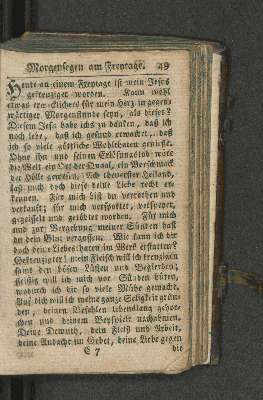 Morgensegen am Freytage. 49
Heute an einem Freytage ist mein Jesus
gekreuziget worden. Kann wohl
etwas erwecklichers für mein Herz in gegen-
wärtiger Morgenstunde seyn, als dieses?
Diesem Jesu habe ichs zu danken, daß ich
noch lebe, daß ich gesund erwacht, daß
ich so viele göttliche Wohlthaten genieße.
Ohne ihn und seinen Erlösungstod wäre
die Welt ein Ort der Quaal, ein Vorschmack
der Hölle gewesen. Ach theuerster Heiland,
laß mich doch diese deine Liebe recht er-
kennen. Für mich bist du verrathen und
verkauft; für mich verspottet, verspeyet,
gegeisselt und getödtet worden. Für mich
und zur Vergebung meiner Sünden hast
du dein Blut vergossen. Wie kann ich dir
doch deine Liebesthaten im Werk erstatten?
Gekreuzigter! mein Fleisch will ich kreuzigen
samt den bösen Lüsten und Begierden;
fleißig will ich mich vor Sünden hüten,
wodurch ich dir so viele Mühe gemacht.
Auf dich will ich meine ganze Seligkeit grün-
den, deinen Befehlen lebenslang gehor-
chen und deinem Beyspiele nachahmen.
Deine Demuth, dein Fleiß und Arbeit,
deine Andacht im Gebet, deine Liebe gegen
C 7 die